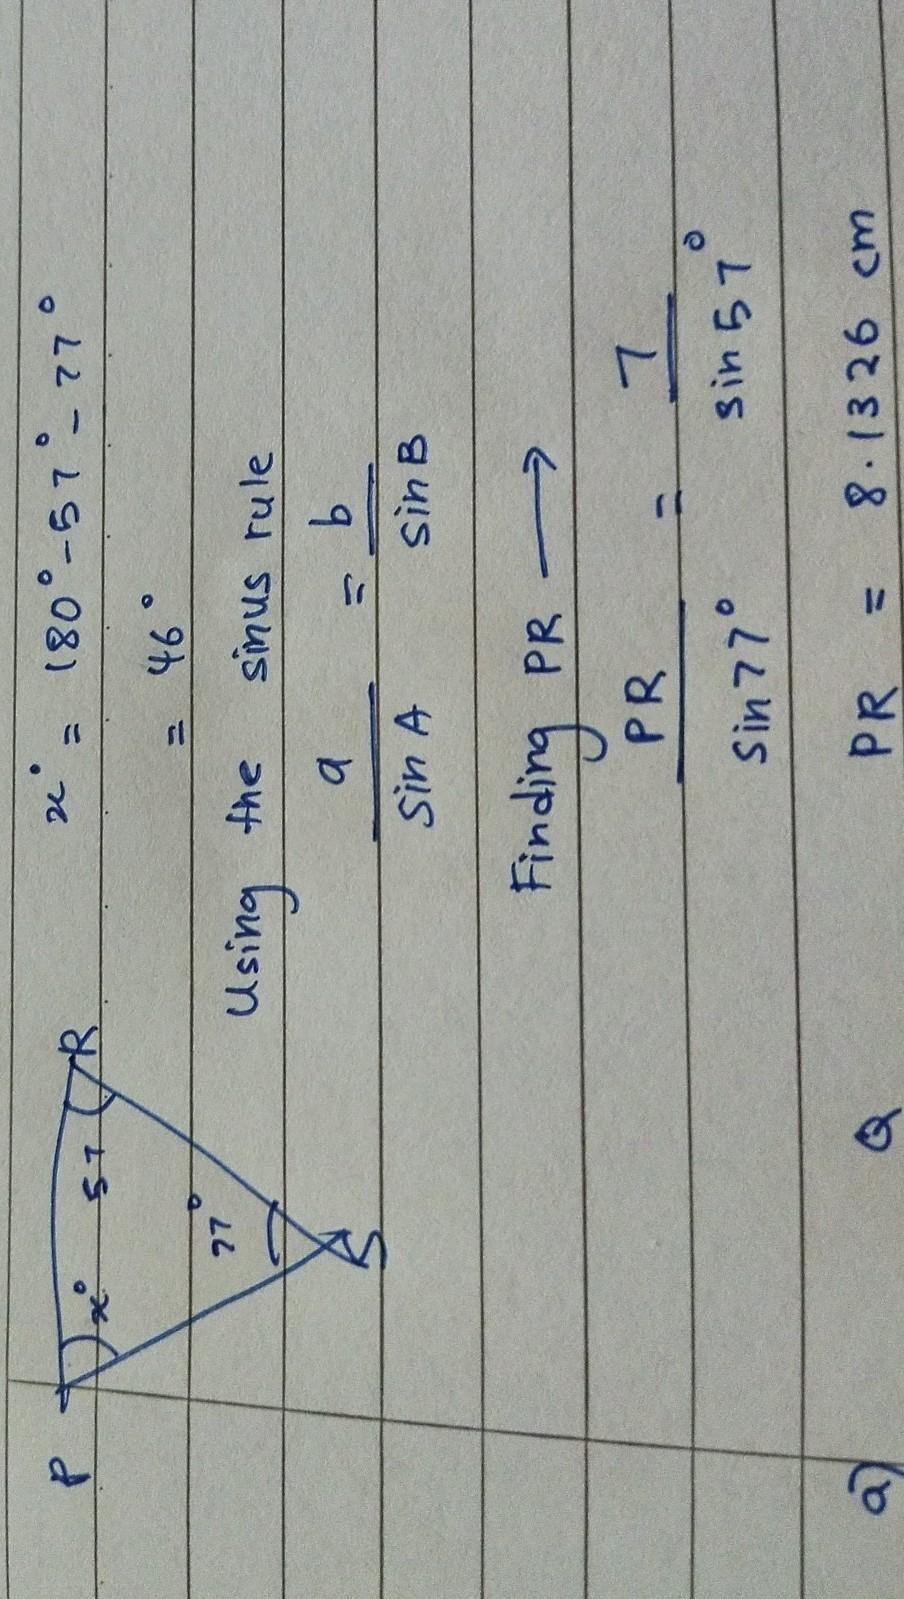 P x° 57 R
77°
S
x° = 180° - 57° - 77°
= 46°
Using the sinus rule
a / sin A = b / sin B
Finding PR →
PR / sin 77° = 7 / sin 57°
PR = 8.1326 cm
a) Q